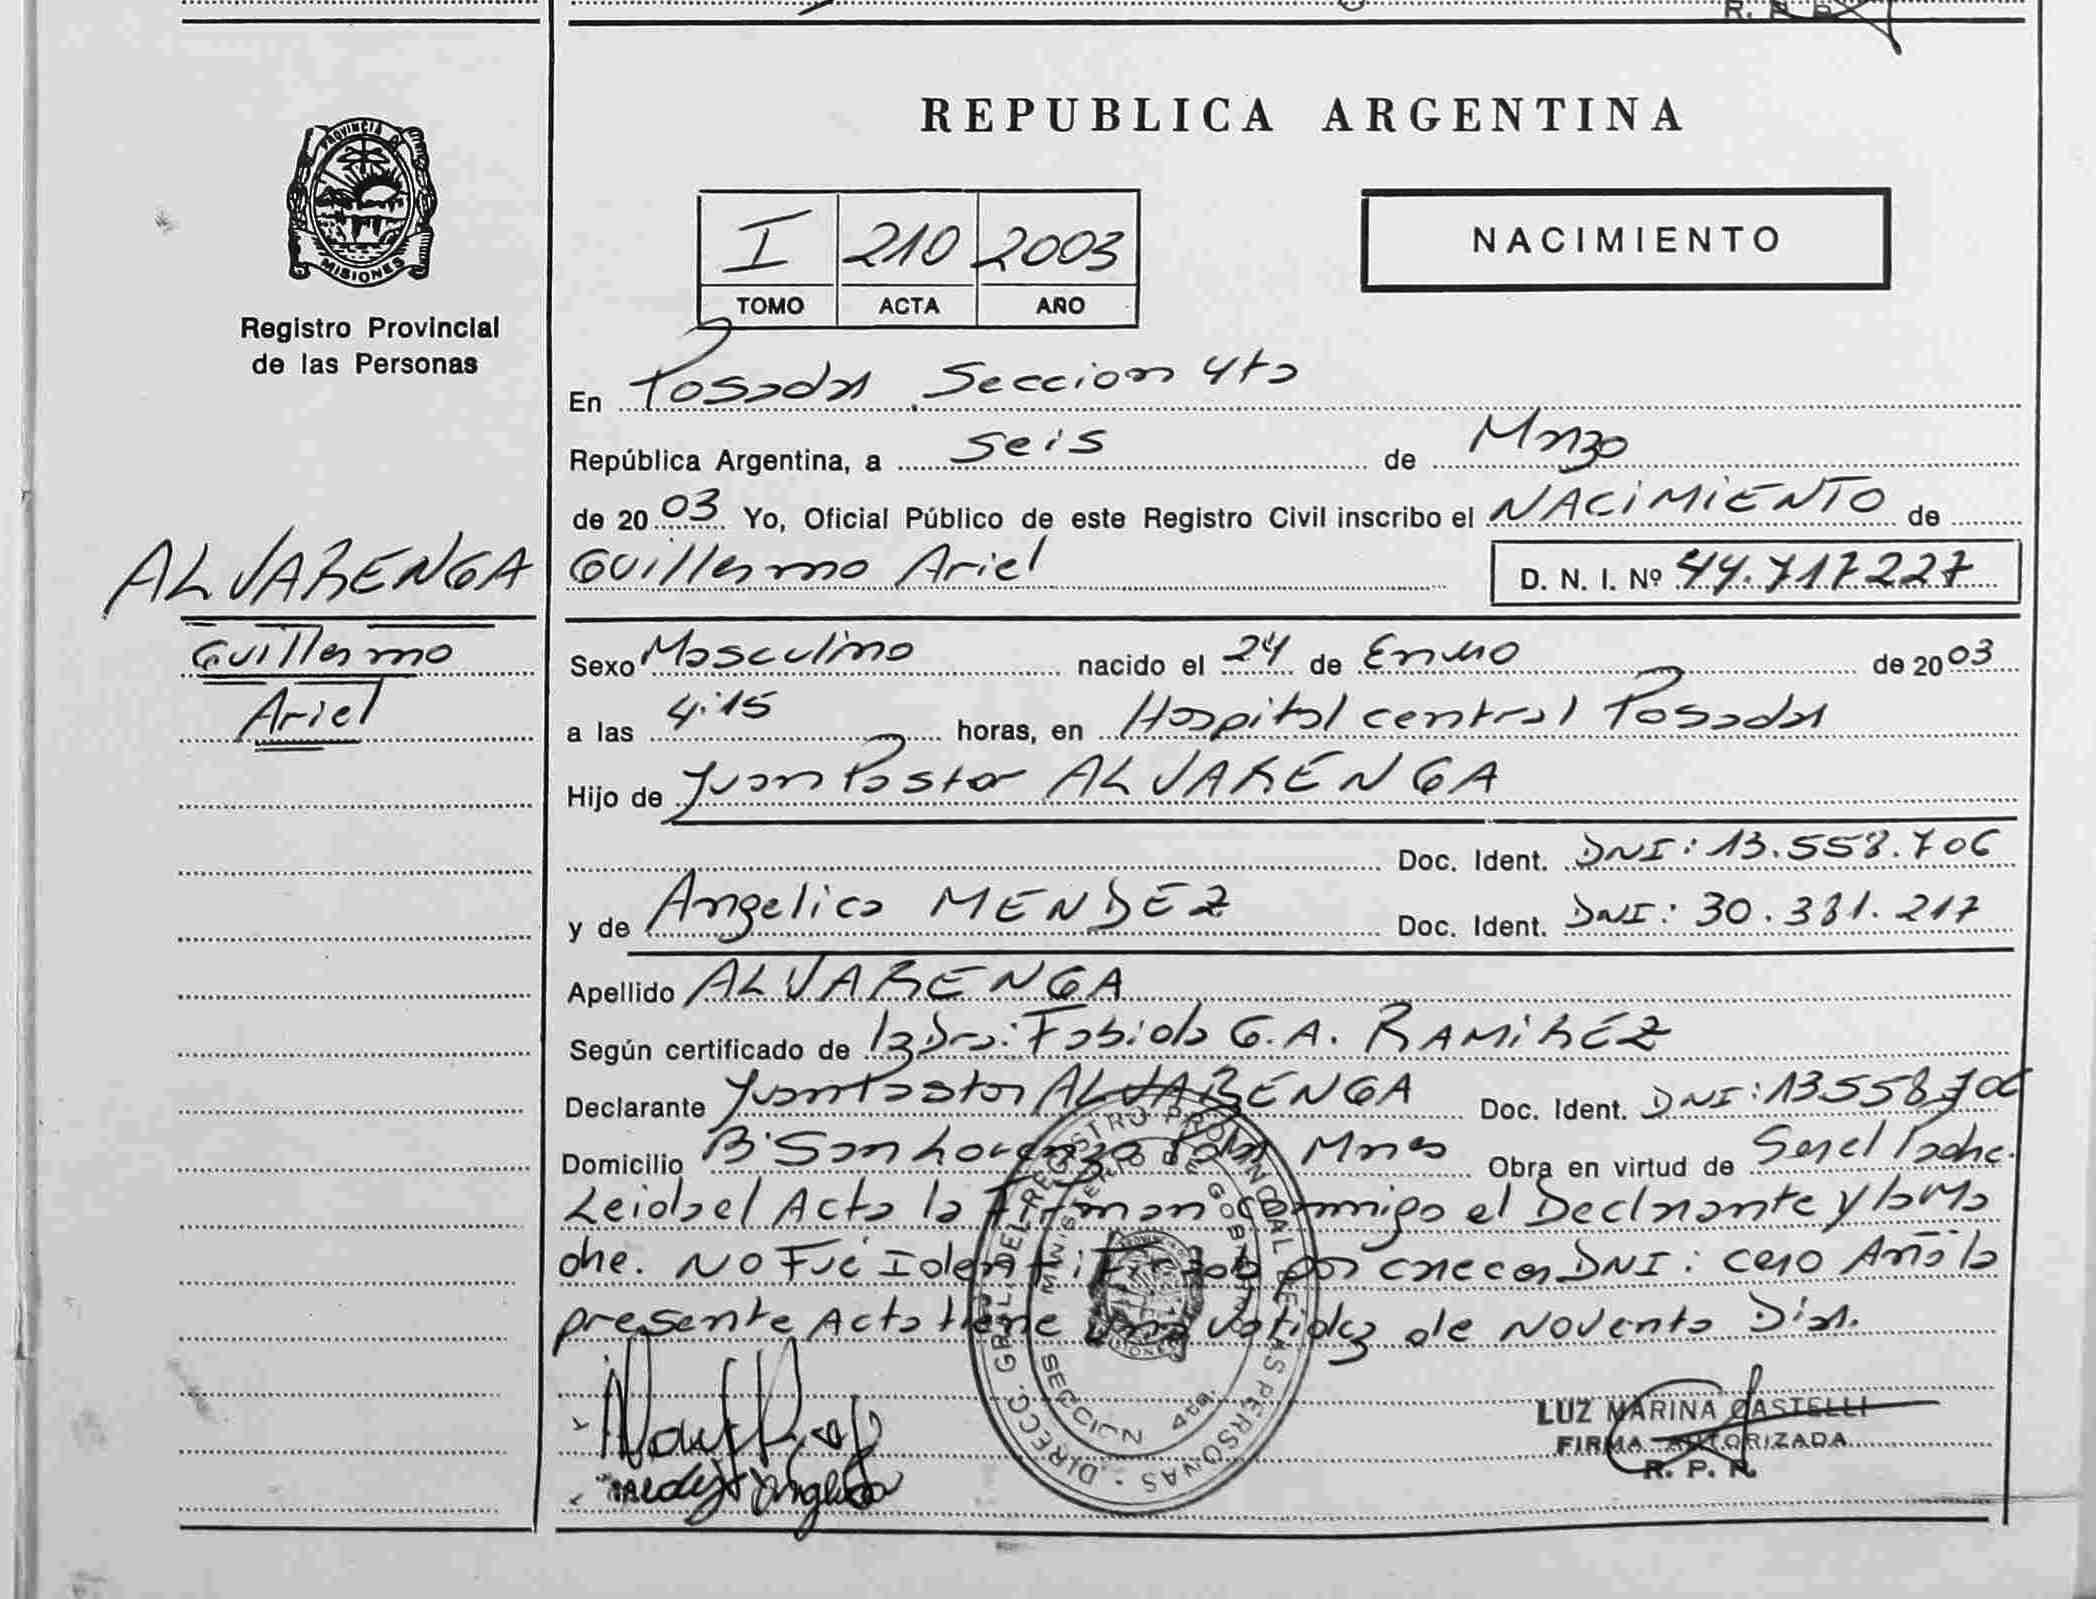 PROVINCIA DE
MISIONES
Registro Provincial
de las Personas
ALVARENGA
Guillermo
Ariel
REPUBLICA ARGENTINA
I 210 2003
TOMO ACTA AÑO
NACIMIENTO
En Posadas Seccion 4ta
República Argentina, a Seis de Marzo
de 20 03 Yo, Oficial Público de este Registro Civil inscribo el NACIMIENTO de
Guillermo Ariel D. N. I. Nº 44.717.227
Sexo Masculino nacido el 24 de Enero de 20 03
a las 4:15 horas, en Hospital central Posadas
Hijo de Juan Pastor ALVARENGA
Doc. Ident. DNI: 13.558.706
y de Angelica MENDEZ Doc. Ident. DNI: 30.381.217
Apellido ALVARENGA
Según certificado de la Dra: Fabiola G.A. RAMIREZ
Declarante Juan Pastor ALVARENGA Doc. Ident. DNI: 13558706
Domicilio Bº San Lorenzo Pdas Mnes Obra en virtud de Ser el Padre.
Leida el Acta la Firman conmigo el Declarante y la Ma
dre. NO Fué Identificado por carecer DNI: cero Año la
presente Acta tiene una validez de Noventa Dias.
DIRECC. GRAL. DEL REGISTRO PROVINCIAL DE LAS PERSONAS
MINISTERIO DE GOBIERNO
SECCION 4ta.
LUZ MARINA CASTELLI
FIRMA AUTORIZADA
R. P. P.